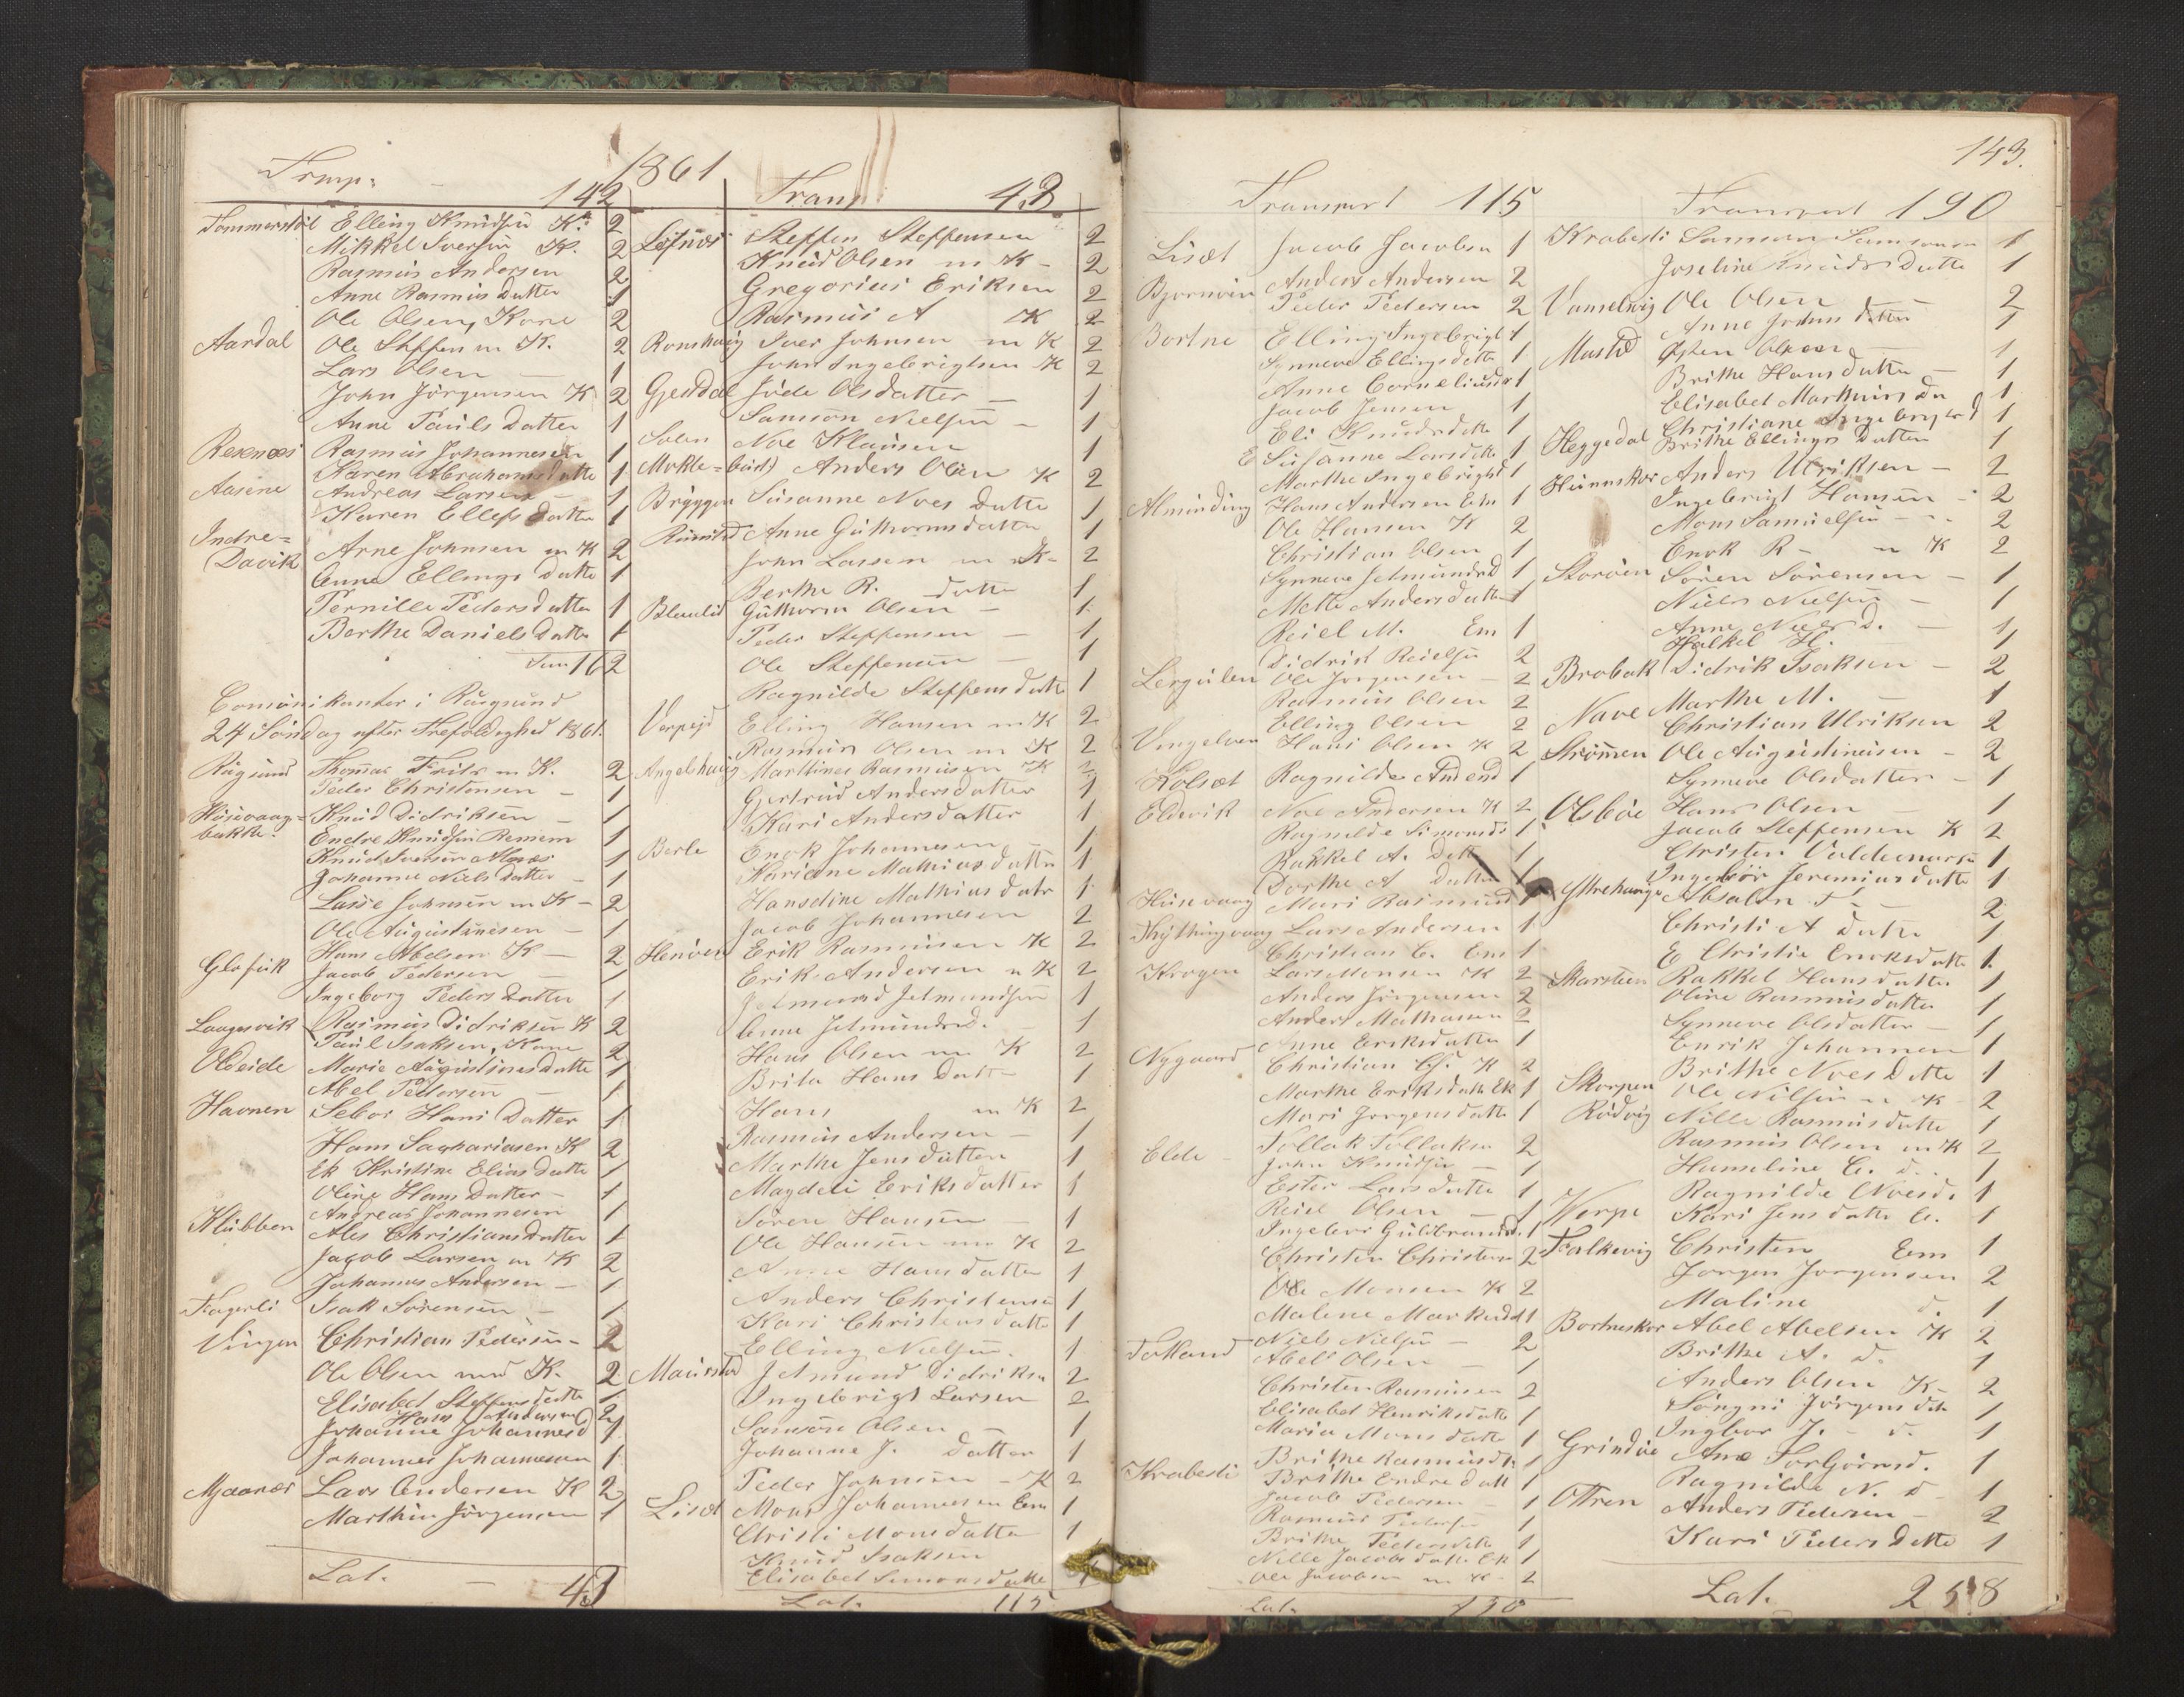 1861
Transp: 142
Tommerstøl Elling Knudsen K. 2
Mikkel Iversen K. 2
Rasmus Andersen 2
Anne Rasmus Datter 1
Ole Olsen, Kone 2
Aardal Ole Steffen m K. 2
Lars Olsen 1
John Jörgensen K 2
Anne Pauls Datter 1
Rexnæs Rasmus Johannesen 1
Karen Abrahams datte 1
Aasene Andreas Larsen 1
Karen Ellefs Datter 1
Indre=
Davik Arne Johnsen m K 2
Anne Ellings Datte 1
Pernille Peders datter 1
Berthe Daniels Datter 1
Sum 162
Comunikanter i Rugsund
24 Søndag efter Trefoldighed 1861.
Rugsund Thomas Friis m K. 2
Peder Christensen 1
Husevaag= Knud Didriksen 1
bakke. Endre Knudsen 1
Knud Iversen 1
Johanne Niels Datter 1
Lasse Johnsen m K 2
Ole Augustinusen 1
Hans Abelsen K 2
Jacob Pedersen 1
Ingeborg Peders Datter 1
Rasmus Didriksen K 2
Paul Isaksen, Kone 2
Oldeide Marie Augustinus datte 1
Abel Pedersen 1
Havnen Sebor Hans Datter 1
Hans Sachariasen K 2
Ek Kristine Elias Datte 1
Oline Hans Datter 1
Andreas Johannesen 1
Klubben Ales Christians datter 1
Jacob Larsen m K 2
Johannes Andersen 1
Fagerli Isak Sørensen 1
Vingen Christian Pedersen 2
Ole Olsen med K. 2
Elisabet Steffens datte 1
Hans Andersen 2
Johanne Johannesd 1
Johannes Johannesen 1
Lars Andersen K 2
Marthin Jørgensen 1
Lat. 43
Trans 43
Steffen Steffensen 2
Knud Olsen m K 2
Gregorius Eriksen 2
Rasmus A K 2
Iver Johnsen m K 2
John Ingebrigtsen K 2
Gjesdal Jøde Olsdatter 1
Samson Nielsen 1
Noe Klausen 1
Anders Olsen K 2
Bryggen Susanne Noes Datte 1
Anne Guthormsdatter 1
John Lassen m K 2
Berthe R. datte 1
Guthorm Olsen 1
Peder Steffensen 1
Ole Steffensen 1
Ragnilde Steffens datte 1
Elling Hansen m K 2
Rasmus Olsen m K 2
Angelshaug Marthines Rasmusen K 2
Gjertrud Anders datter 1
Kari Anders datter 1
Berle Enok Johannesen 1
Kariane Mathias datter 1
Hansdine Mathias datr 1
Jacob Johannesen 2
Henøen Erik Rasmusen K 2
Erik Andersen m K 2
Jetmund Jetmundsen 1
Anne Jetmundsd. 1
Hans Olsen m K 2
Brita Hans Datt 1
Hans m K 2
Rasmus Andersen 1
Marthe Jens datter 1
Magdeli Eriks datter 1
Søren Hansen 1
Ole Hansen m K 2
Anne Hans datter 1
Anders Christensen 1
Kari Christens datte 1
Elling Nielsen 1
Maurstad Jetmund Didriksen 2
Ingebrigt Larsen 2
Samson Olsen 1
Johanne J. datter 1
Peder Johnsen K 2
Liset Mons Johannesen Em 1
Christi Mons datter 1
Knud Isaksen
Elisabet Simons datte 1
Lat. 115
Transport 115
Liset Jacob Jacobsen 1
Anders Andersen 2
Peder Pedersen 2
Bortne Elling Ingebrigt 1
Synneve Ellingsdatte 1
Anne Corneliusd 1
Jacob Jensen 1
Eli Knudsdatte 1
E Susanne Larsdatte 1
Marthe Ingebrightd 1
Alminding Hans Andersen Em 1
Ole Hansen K 2
Christian Olsen 1
Synneve Jetmundsd 1
Mette Andersdatter 1
Reiel M. Em 1
Didrik Reielsen 2
Lergulen Ole Jorgensen 2
Rasmus Olsen 2
Elling Olsen 2
Vingelven Hans Olsen K 2
Kolset Ragnilde And end 1
Eldevik Noe Andersen K 2
Ragnilde Simonsd 1
Rakkel A. Datt 1
Dorthe A Datter 1
Husevaag Mari Rasmusd 1
Lars Andersen 1
Christian C. Em 1
Krogen Lars Monsen K 2
Anders Jörgensen 2
Anders Mathiasen 2
Nygaard Anne Eriksdatter 1
Christian K 2
Marthe Eriksdatte Ek 1
Mari Jørgensdatte 1
Elde Tollak Tollaksen 2
John Knudsen 1
Ester Larsdatte 1
Reiel Olsen 1
Ingebor Guldbrandsd. 1
Christen Christensen 2
Ole Monsen K 2
Malene Markusd 1
Niels Nielsen 2
Abel Olsen 1
Christen Rasmusen 2
Elisabet Henriksdatte 1
Maria Monsdatte 1
Krabesti Brithe Rasmusdtr 1
Brithe Endre datt 1
Jacob Pedersen 1
Rasmus Pedersen 1
Brithe Pedersdatte 1
Nille Jacobsdatte Ek 1
Ole Jacobsen m K 2
Lat. 190
143.
Transport 190
Krabesti Samson Samsonsen 1
Joseline Knuds Datte 1
Ole Olsen 2
Anne Johns datter 1
Østen Olsen 1
Brithe Hansdatter 1
Elisabet Marthins Da 1
Christiane Ingebrgtsd 1
Heggedal Brithe Ellings Datter 1
Hunnskor Anders Ulriksen 2
Ingebrigt Hansen 2
Mons Samuelsen 2
Enok R m K 2
Storøen Søren Sørensen 1
Niels Nielsen 1
Anne Niels d. 1
H. 1
Brobak Didrik Isaksen 2
Nave Marthe M. 1
Christian Ulriksen 2
Strømmen Ole Augustinusen 2
Synneve Olsdatter 1
Olsbøe Hans Olsen 1
Jacob Steffensen K 2
Christen Valdemars 1
Ingebør Jeremias datte 1
Absalon 2
Christi A Datte 1
E Christie Enoksdatte 1
Rakkel Hansdatter 1
Oline Rasmusdatter 1
Synneve Olsdatter 1
Enrik Johannesen 1
Brithe Noes Datte 1
Skorpen Ole Nilsen m K 2
Rødvig Nille Rasmusdatte 1
Rasmus Olsen m K 2
Hanseline C. d. 1
Ragnilde Noesd. 1
Kari Jensdatte C. 1
Falkevig Christen Em 1
Jørgen Jørgensen 2
Maline d. 1
Bortneskor Abel Abelsen K 2
Brithe A. d. 1
Anders Olsen K 2
Jörgens datte 1
Ingbor J. d. 1
Ane Torbjørnsd. 1
Ragnilde N. d 1
Otren Anders Pedersen 2
Kari Peders datte 1
Lat. 258